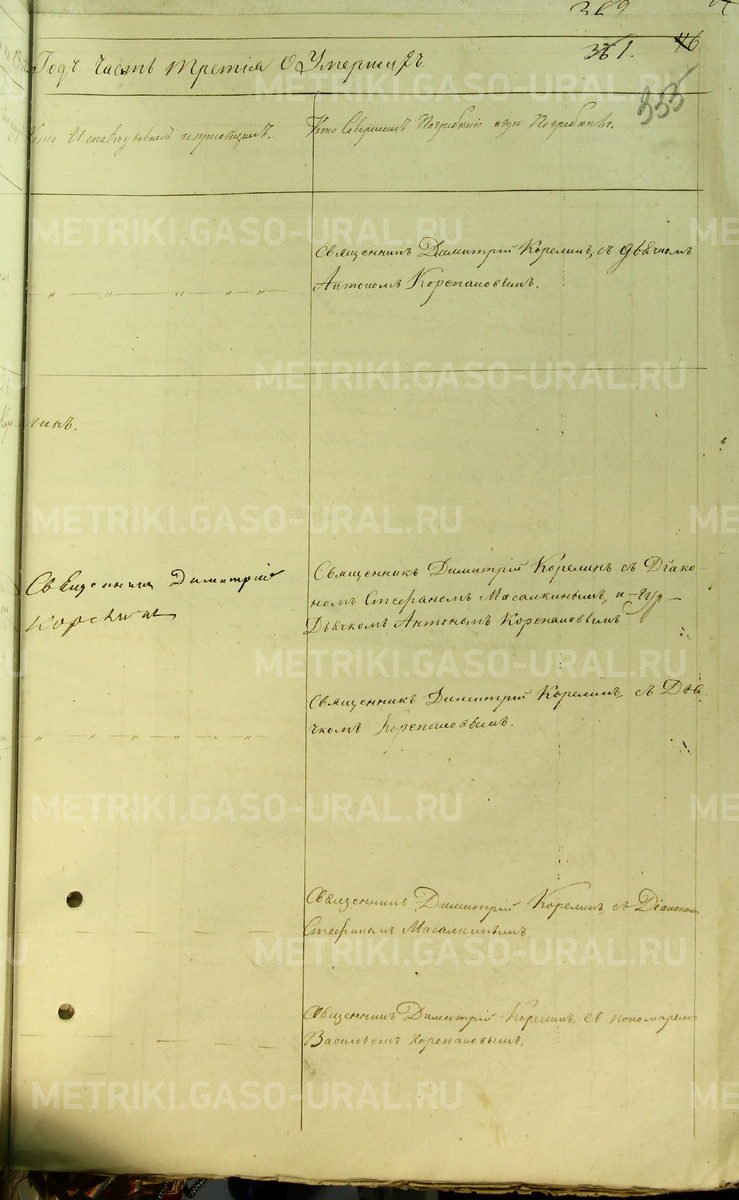 369
361. 46
Годъ часть третія О Умершихъ.
333
Кто Исповѣдывалъ и приобщалъ.
Кто Совершалъ Погребеніе и гдѣ Погребены.
METRIKI.GASO-URAL.RU
Священникъ Димитрій Корелинъ, съ дьячкомъ
Антономъ Корепановымъ.
METRIKI.GASO-URAL.RU
гинъ.
METRIKI.GASO-URAL.RU
Священникъ Димитрій
Корелинъ
Священникъ Димитрій Корелинъ съ Діако-
номъ Стефаномъ Масалкинымъ, и
Дьячкомъ Антономъ Корепановымъ
METRIKI.GASO-URAL.RU
Священникъ Димитрій Корелинъ, съ Дья-
чкомъ Корепановымъ.
METRIKI.GASO-URAL.RU
Священникъ Димитрій Корелинъ съ Діакономъ
Стефаномъ Масалкинымъ
METRIKI.GASO-URAL.RU
Священникъ Димитрій Корелинъ, съ пономаремъ
Васильемъ Корепановымъ.
METRIKI.GASO-URAL.RU